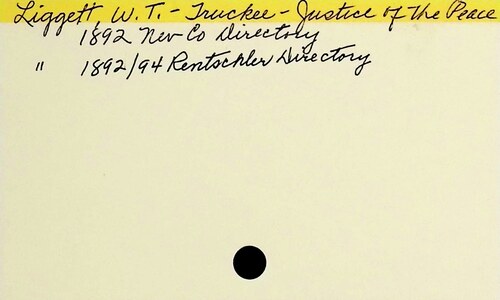 Liggett, W. T. - Truckee - Justice of the Peace
1892 Nev Co Directory
" 1892/94 Rentschler Directory